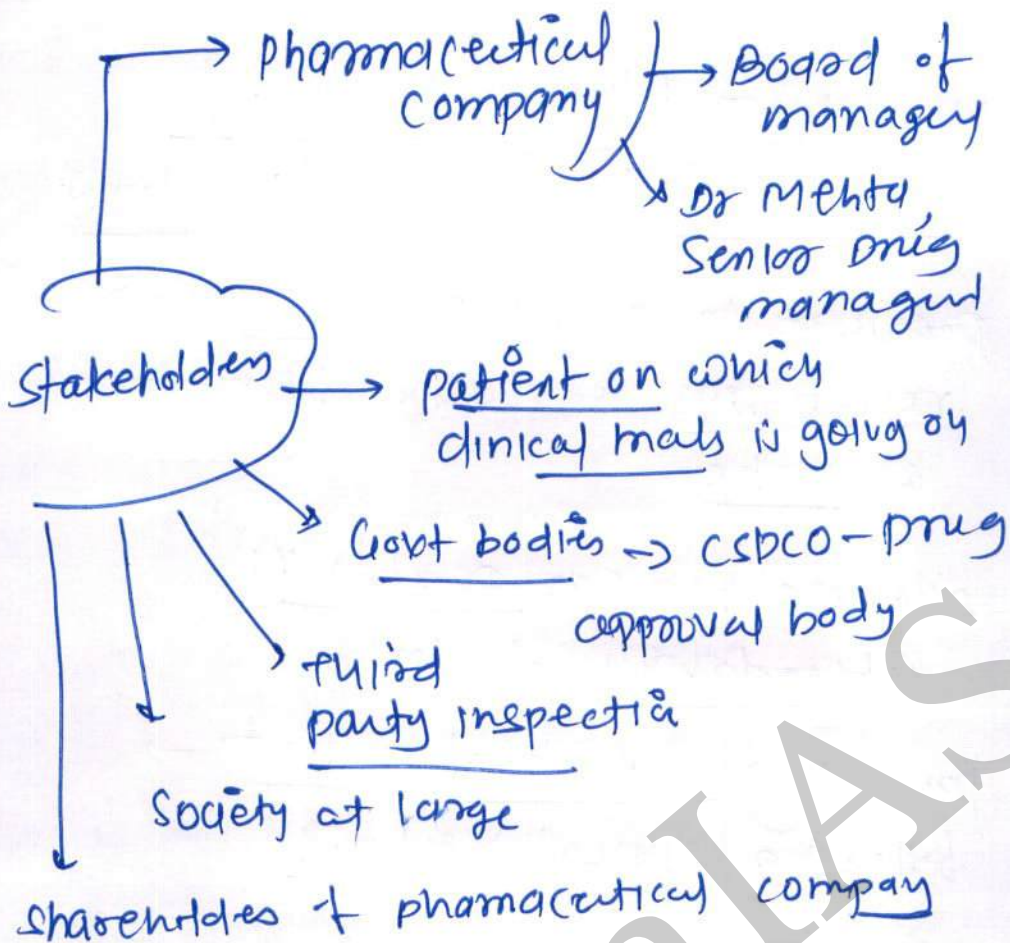 pharmaceutical
company
Board of
managers
Dr Mehta,
Senior Drug
manager
Stakeholders
patient on which
clinical trials is going on
Govt bodies → CSDCO - Drug
approval body
third
party inspection
Society at large
shareholders of pharmaceutical company
IAS